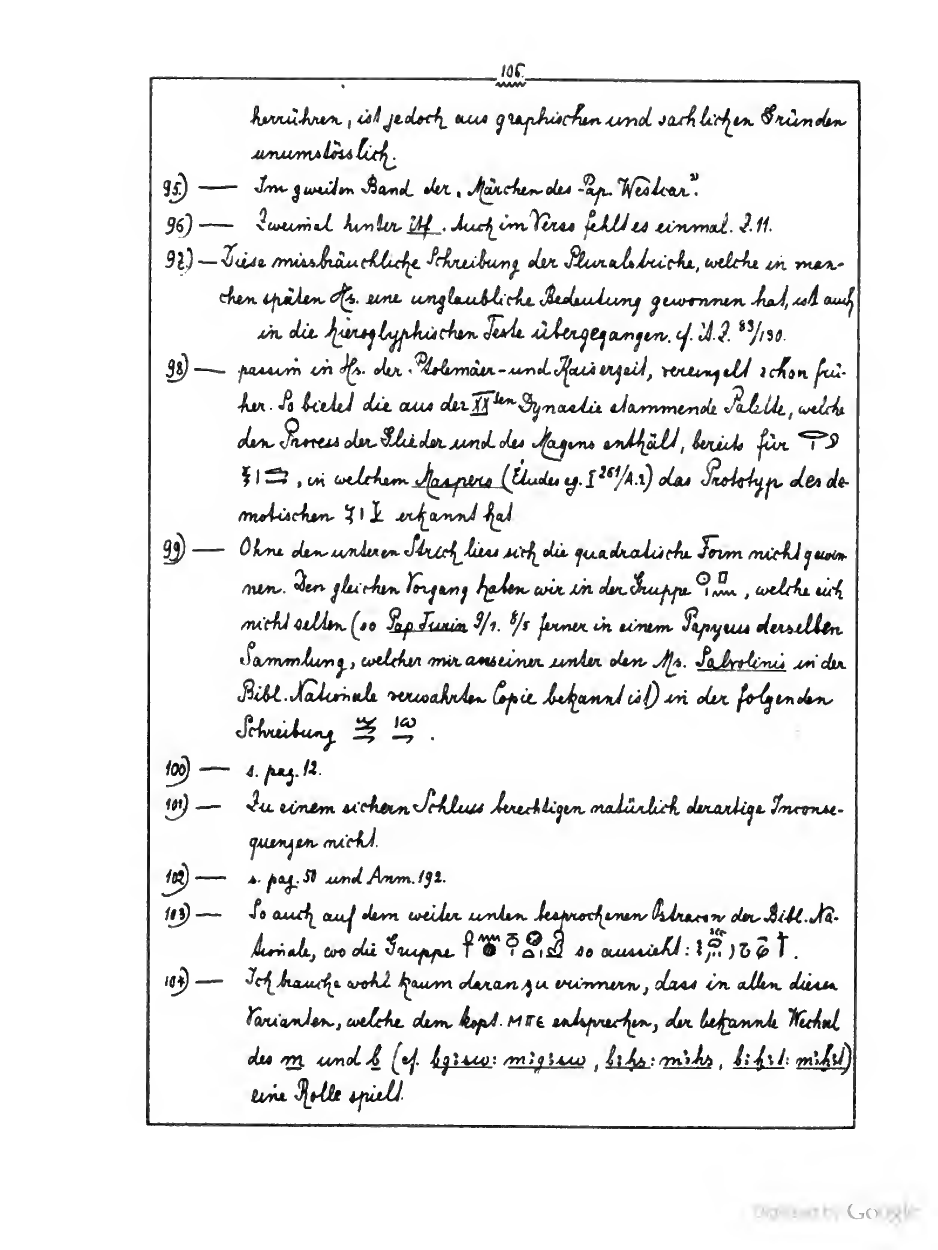 106.
herrühren, ist jedoch aus graphischen und sachlichen Gründen
unumstösslich.
95) — Im zweiten Band der „Märchen des Pap. Westcar".
96) — Zweimal hinter . Auch im Verso fehlt es einmal. Z. 11.
97) — Diese missbräuchliche Schreibung der Pluralstriche, welche in man-
chen späten Hs. eine unglaubliche Bedeutung gewonnen hat, ist auch
in die hieroglyphischen Texte übergegangen. cf. Ä.Z. 83/130.
98) — passim in Hs. der Ptolemäer- und Kaiserzeit, vereinzelt schon frü-
her. So bietet die aus der XXten Dynastie stammende Palette, welche
den Process der Glieder und des Magens enthält, bereits für
, in welchem Maspero (Études eg. I 261/A.2) das Prototyp des de-
motischen erkannt hat
99) — Ohne den unteren Strich liess sich die quadratische Form nicht gewin-
nen. Den gleichen Vorgang haben wir in der Gruppe , welche sich
nicht selten (so Pap Turin 9/1. 8/5 ferner in einem Papyrus derselben
Sammlung, welcher mir aus einer unter den Ms. Salvolinis in der
Bibl. Nationale verwahrten Copie bekannt ist) in der folgenden
Schreibung .
100) — s. pag. 12.
101) — Zu einem sichern Schluss berechtigen natürlich derartige Inconse-
quenzen nicht.
102) — s. pag. 50 und Anm. 192.
103) — So auch auf dem weiter unten besprochenen Ostracon der Bibl. Na-
tionale, wo die Gruppe so aussieht: .
104) — Ich brauche wohl kaum daran zu erinnern, dass in allen diesen
Varianten, welche dem kopt. ⲙⲡⲉ entsprechen, der bekannte Wechsel
des m und b (cf.
eine Rolle spielt.
Digitized by Google